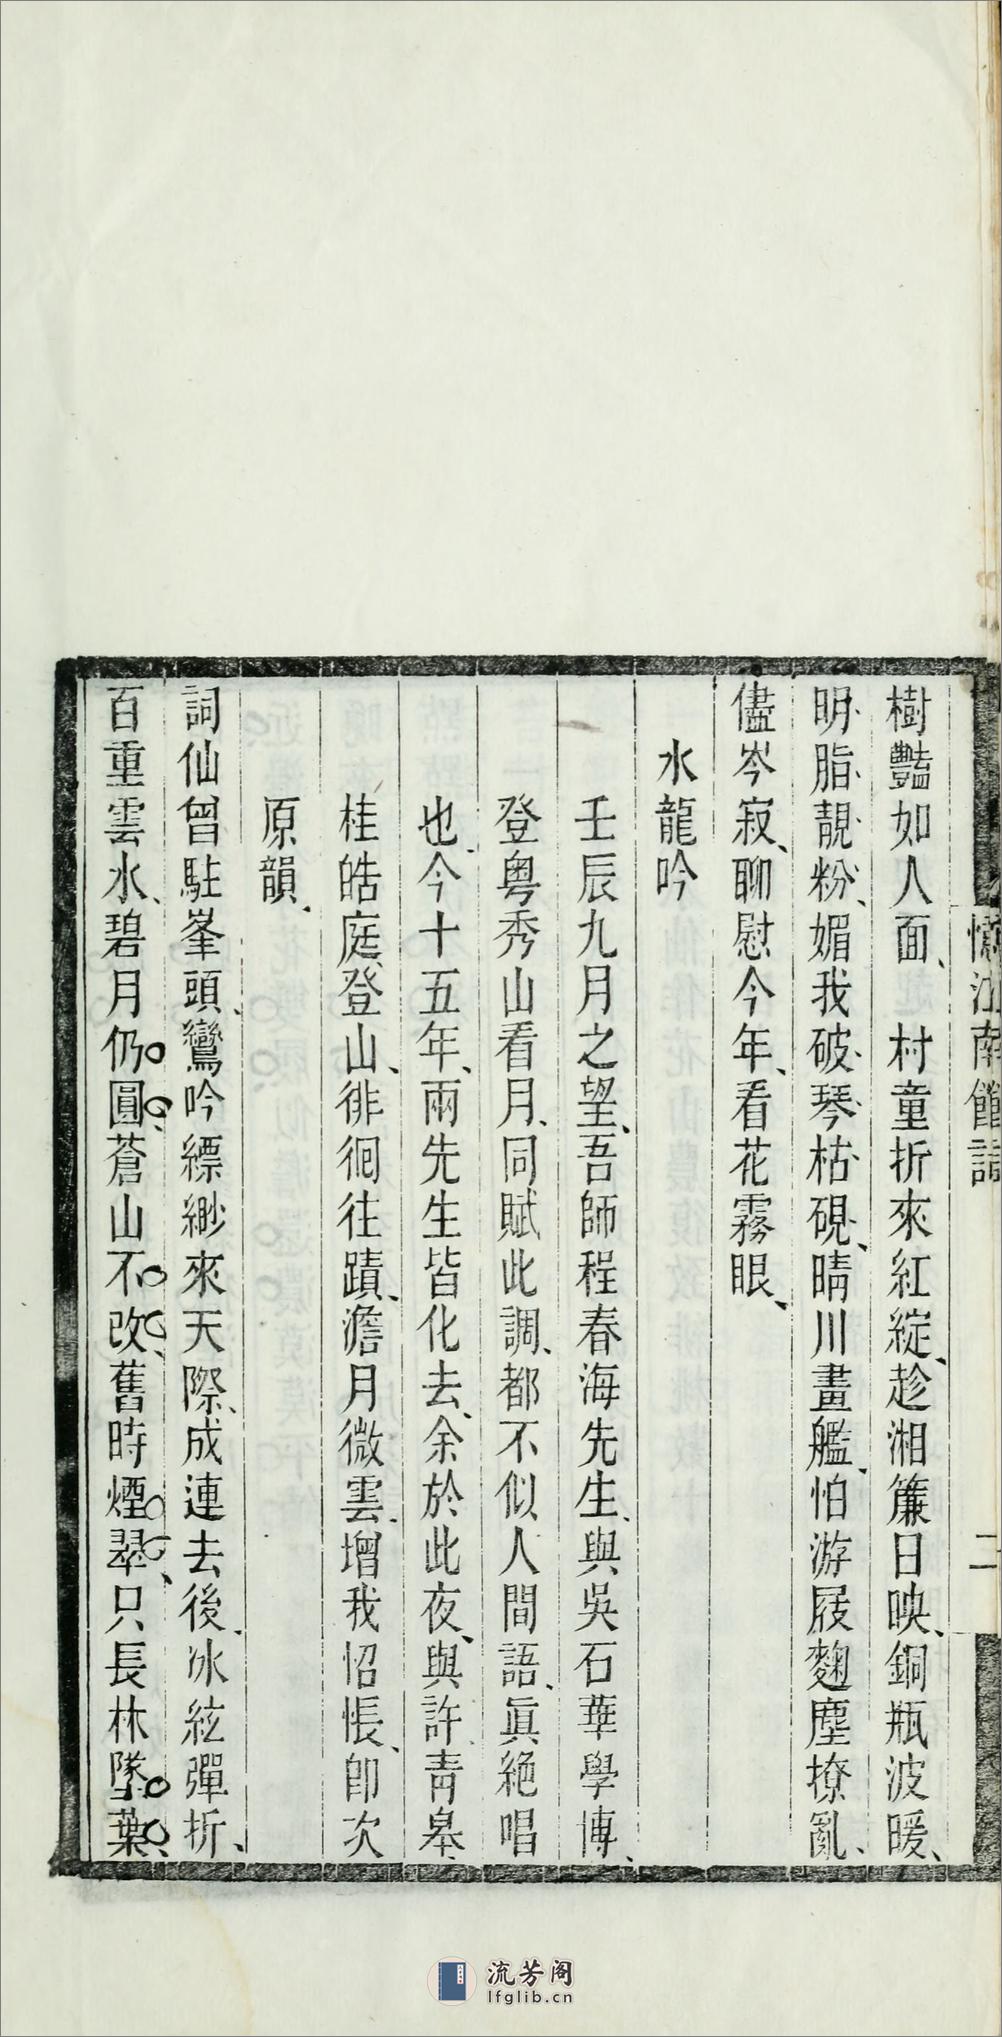 憶江南館詞
二
樹豔如人面、　村童折來紅綻、趁湘簾日映、銅瓶波暖、
明脂靚粉、媚我破琴枯硯、晴川畫艦、怕游屐麴塵撩亂、
儘岑寂、聊慰今年、看花霧眼、
水龍吟
壬辰九月之望、吾師程春海先生、與吳石華學博、
登粵秀山看月、同賦此調、都不似人間語、眞絕唱
也、今十五年、兩先生皆化去、余於此夜、與許青皋、
桂皓庭、登山、徘徊往蹟、澹月微雲、增我怊悵、卽次
原韻、
詞仙曾駐峯頭、鸞吟縹緲來天際、成連去後、冰絃彈折、
百重雲水、碧月仍圓、蒼山不改、舊時煙翠、只長林墜葉、
流芳阁
lfglib.cn